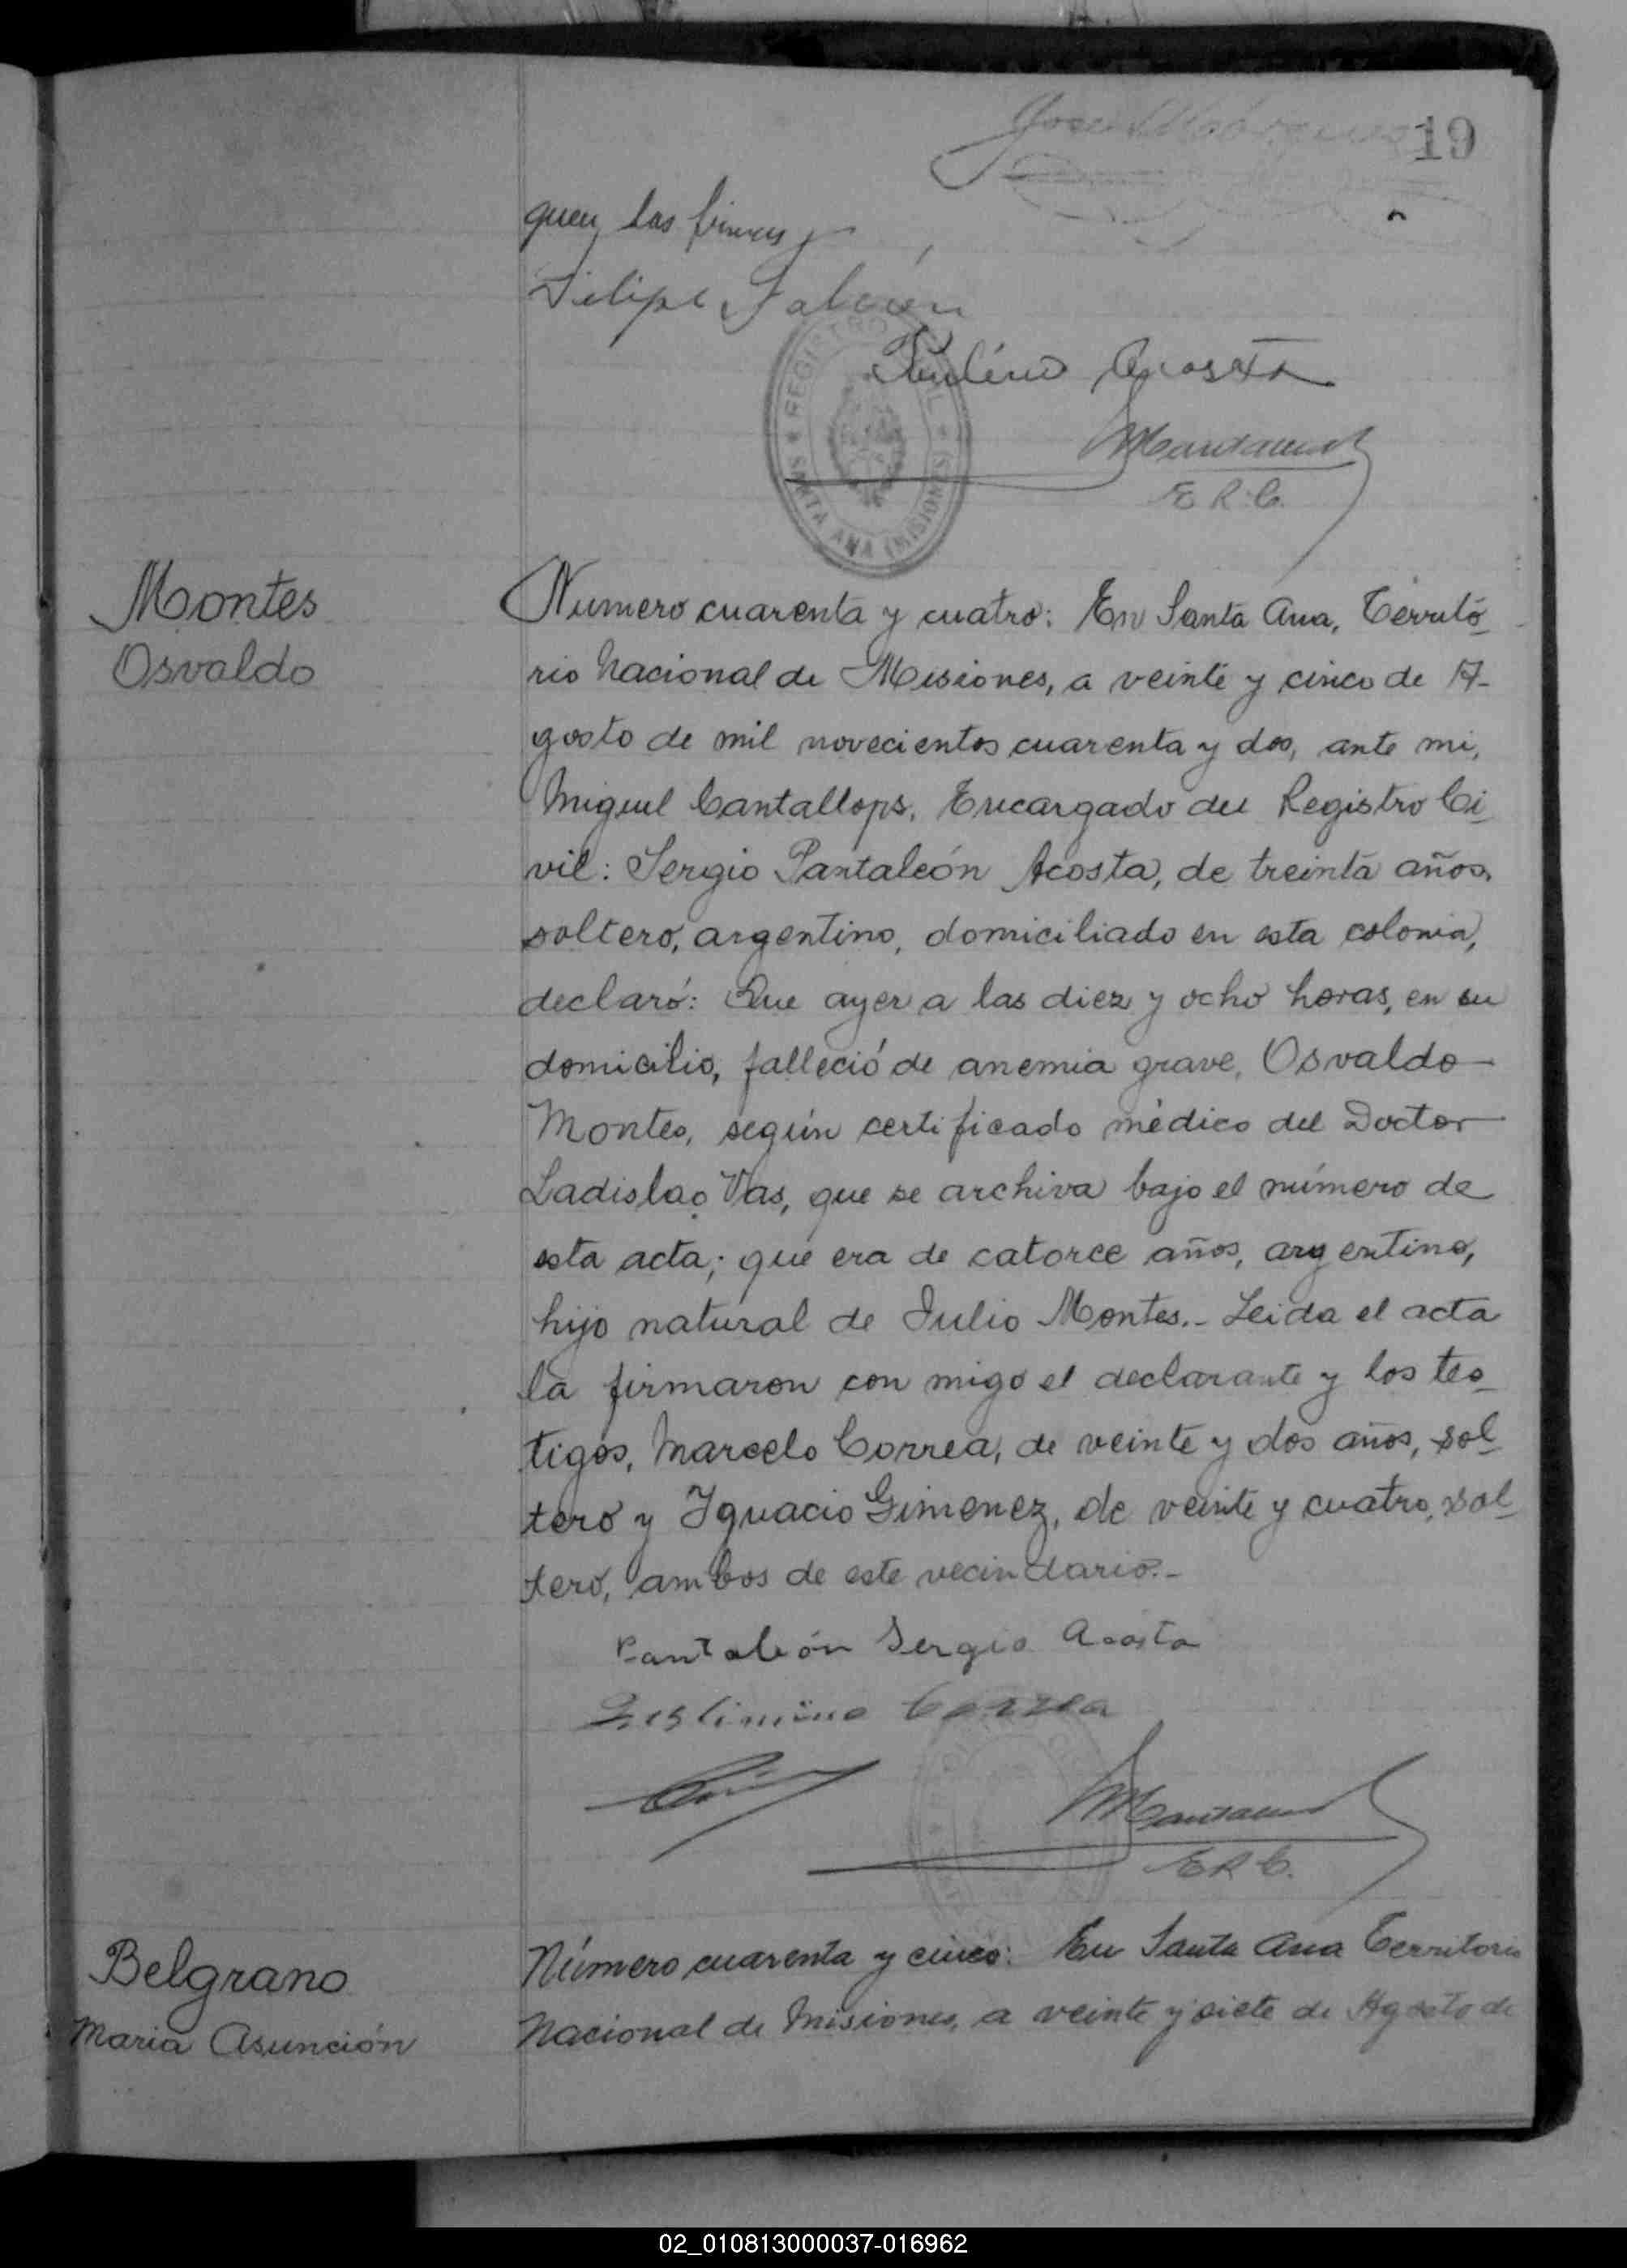 19
quen las firmas
Felipe Falcón
Acosta
REGISTRO CIVIL
SANTA ANA (MISIONES)
E R. C.
Montes
Osvaldo
Numero cuarenta y cuatro: En Santa Ana, Territó-
rio Nacional de Misiones, a veinte y cinco de A-
gosto de mil novecientos cuarenta y dos, ante mi,
Miguel Cantallops, Encargado del Registro Ci-
vil: Sergio Pantaleón Acosta, de treinta años,
soltero, argentino, domiciliado en esta colonia,
declaró: Que ayer a las diez y ocho horas, en su
domicilio, falleció de anemia grave, Osvaldo
Montes, según certificado médico del Doctor
Ladislao Vas, que se archiva bajo el número de
esta acta; que era de catorce años, argentino,
hijo natural de Julio Montes.- Leida el acta
la firmaron con migo el declarante y los tes-
tigos, Marcelo Correa, de veinte y dos años, sol-
tero y Ignacio Gimenez, de veinte y cuatro, sol-
tero, ambos de este vecindario.-
Pantaleón Sergio Acosta
Correa
E R C.
Belgrano
Maria Asunción
Número cuarenta y cinco: En Santa Ana Territorio
Nacional de Misiones, a veinte y siete de Agosto de
02_010813000037-016962